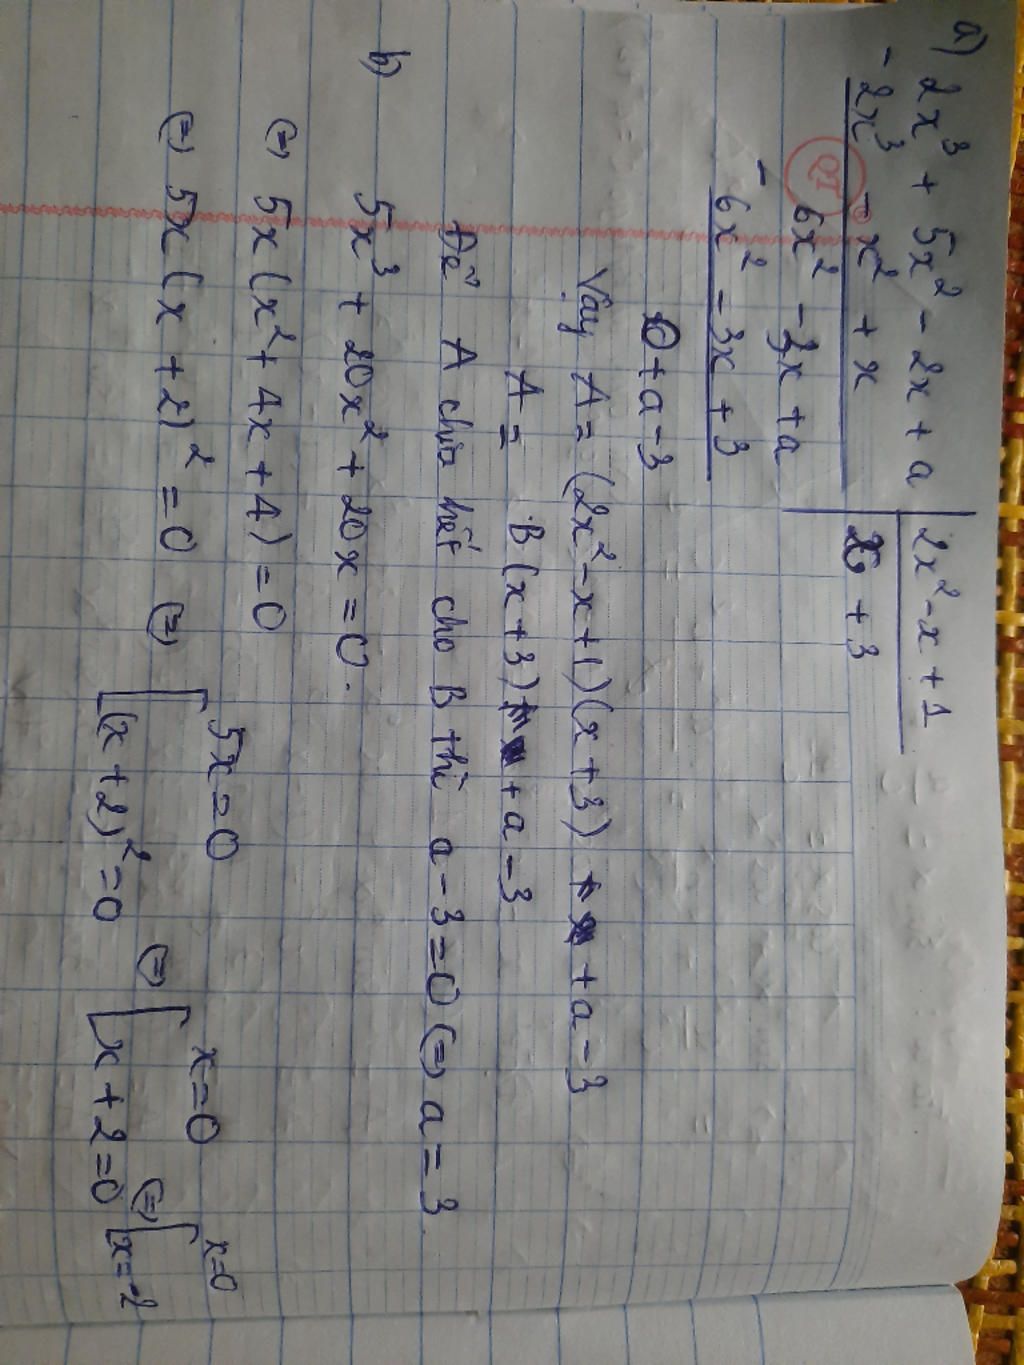 a) 2x³ + 5x² - 2x + a | 2x² - x + 1
- 2x³ - x² + x | x + 3
6x² - 3x + a
- 6x² - 3x + 3
0 + a - 3
Vậy A = (2x² - x + 1)(x + 3) + a - 3
A = B(x + 3) + a - 3
Để A chia hết cho B thì a - 3 = 0 (=) a = 3
b) 5x³ + 20x² + 20x = 0.
(=) 5x (x² + 4x + 4) = 0
(=) 5x (x + 2)² = 0 (=) [ 5x = 0 (=) [ x = 0 (=) [ x = 0
(x + 2)² = 0 x + 2 = 0 x = -2